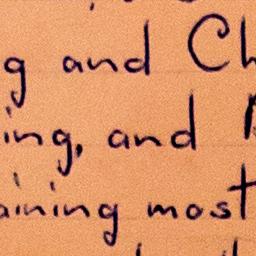 g and Ch
ing, and
aining most